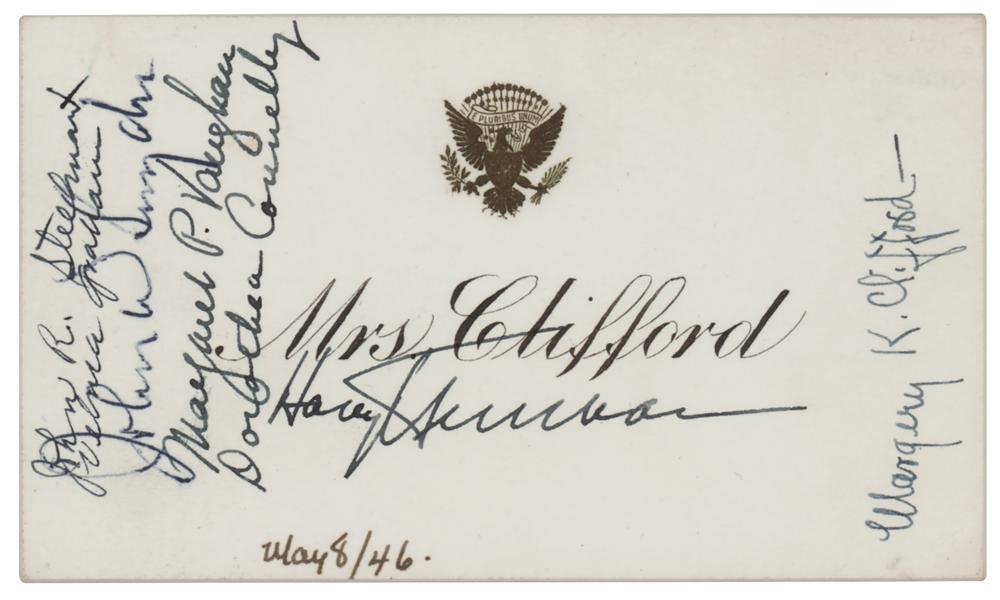 E PLURIBUS UNUM
Mrs. Clifford
Harry Truman
May 8/46.
John R. Steelman
Velma Graham
John W Snyder
Margaret P. Vaughan
Dorothea Connelly
Margery K. Clifford